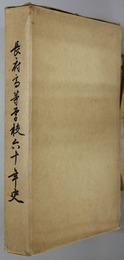 長府高等学校六十年史